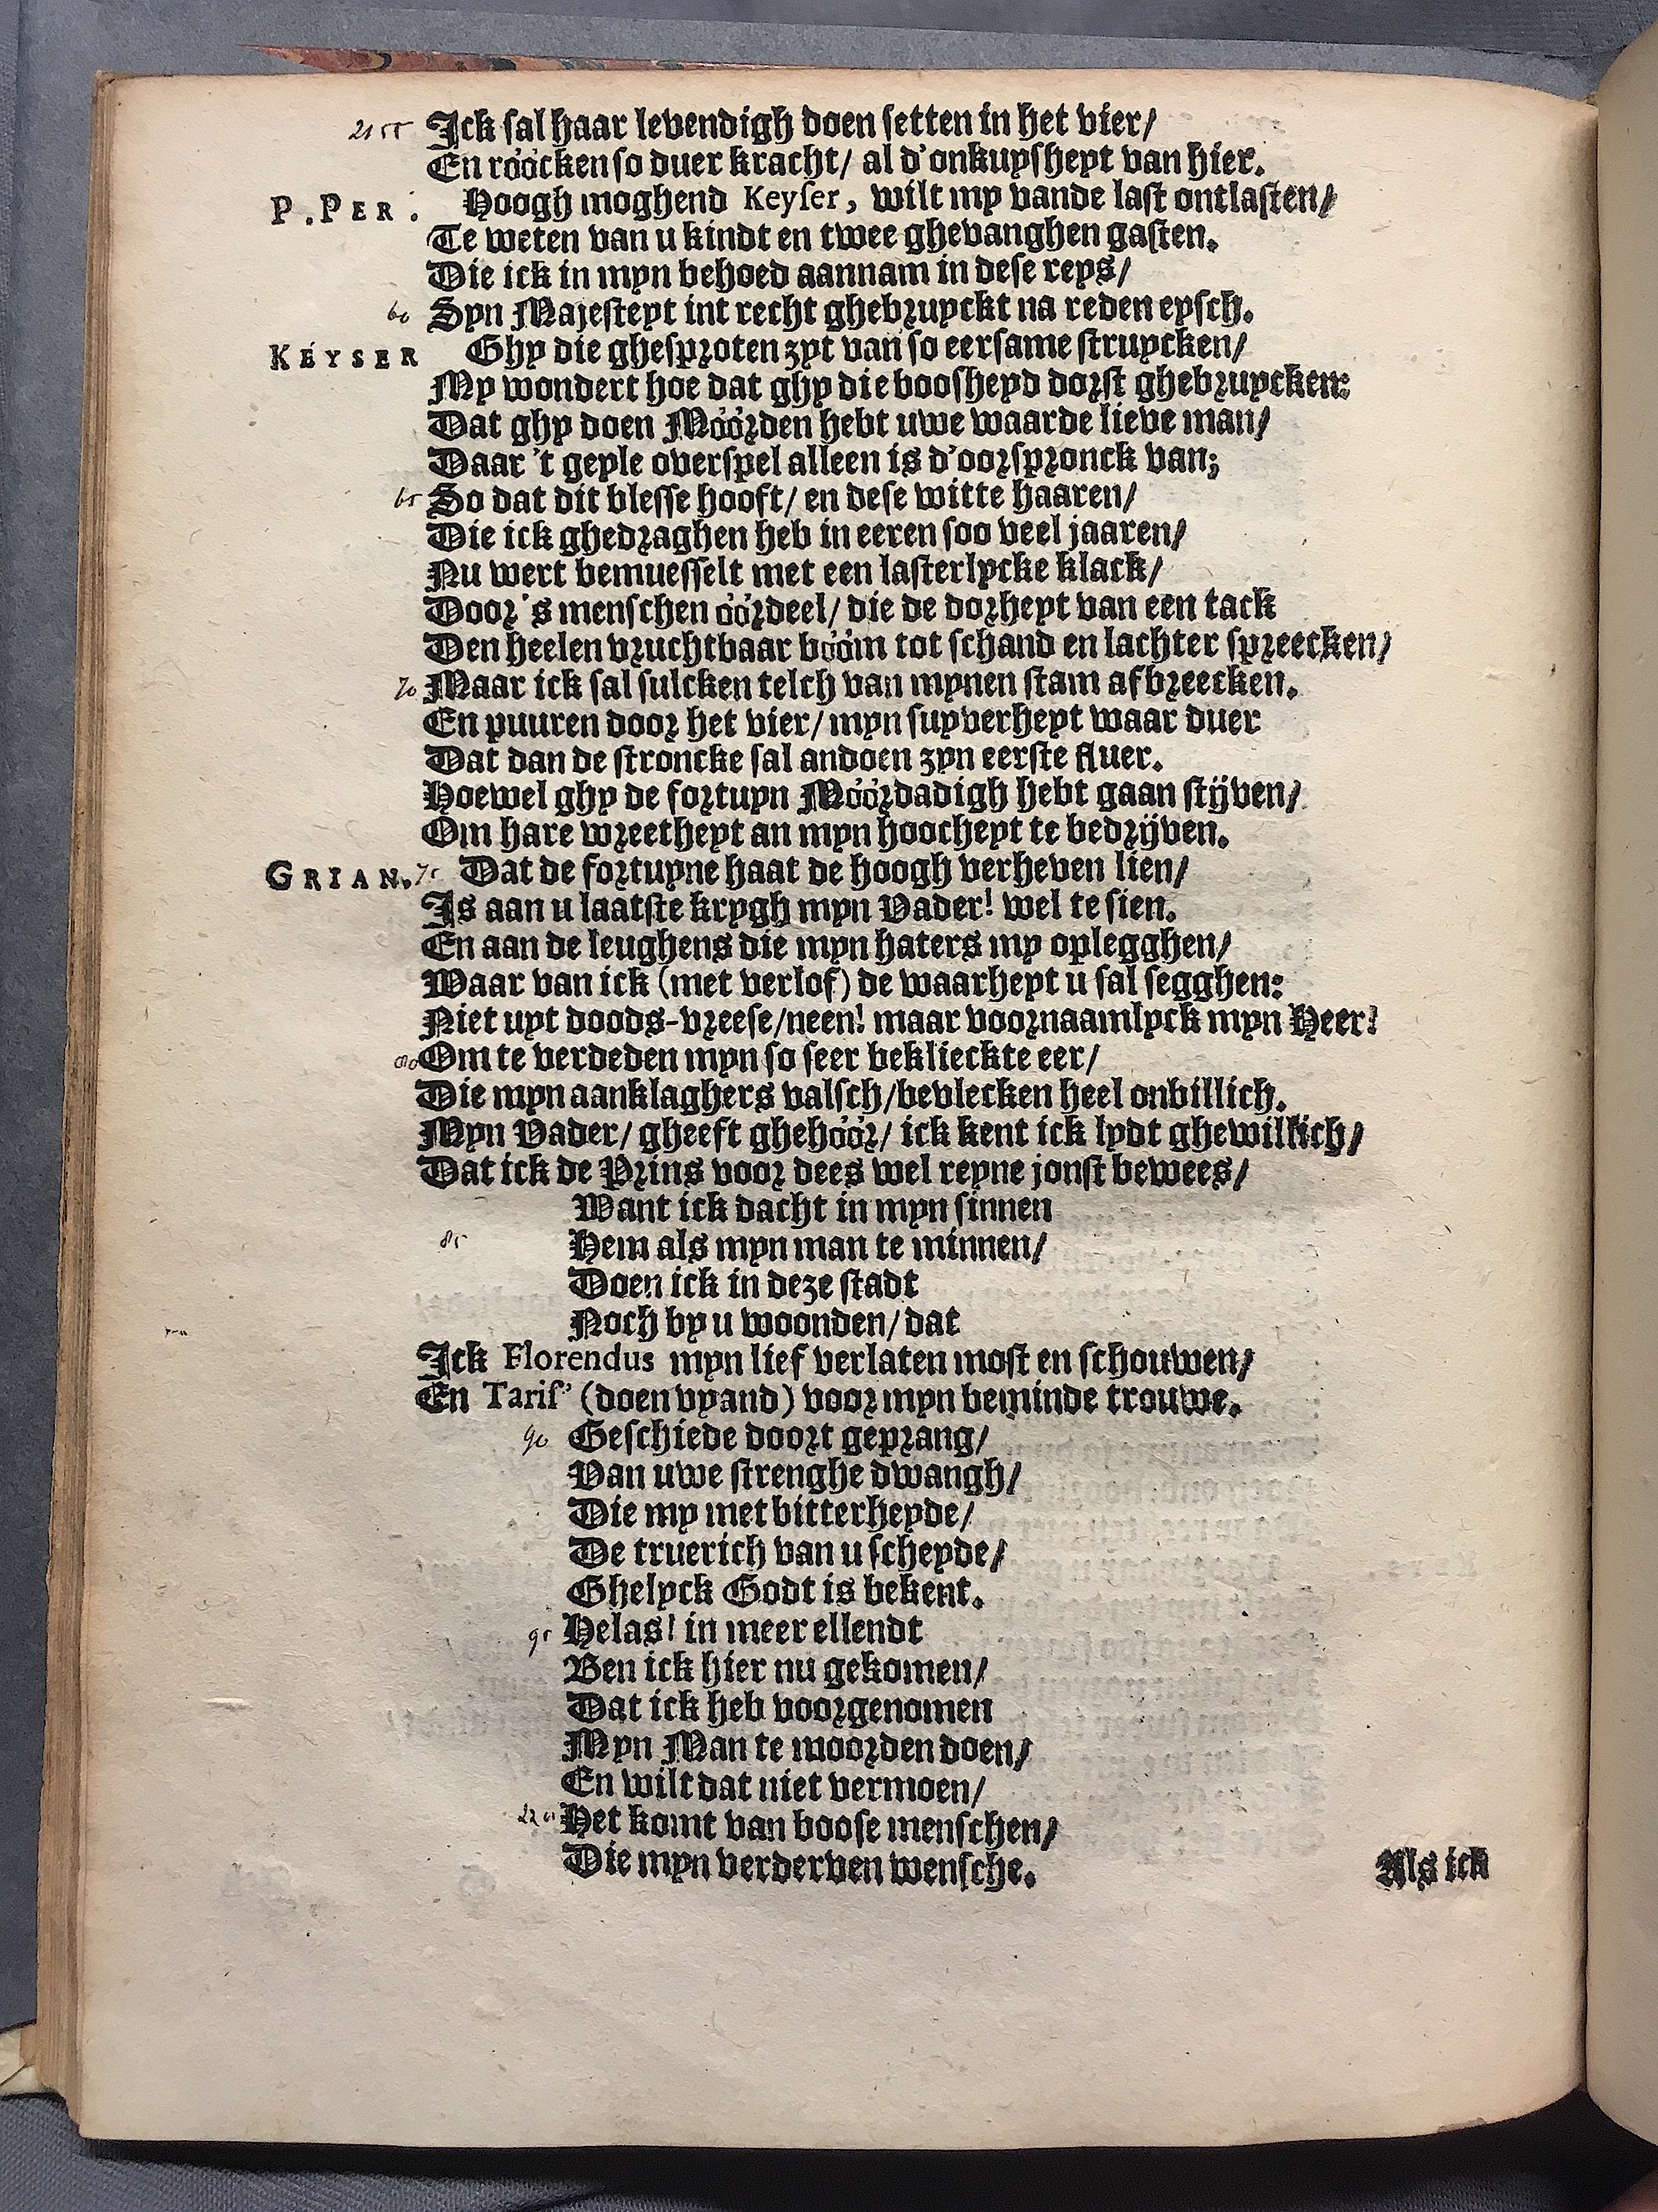 2155 Ick sal haar levendigh doen setten in het vier/
En róócken so duer kracht/ al d'onkuysheyt van hier.
P. PER. Hoogh moghend Keyser, wilt my vande last ontlasten/
Te weten van u kindt en twee ghevanghen gasten.
Die ick in myn behoed aannam in dese reys/
60 Syn Majesteyt int recht ghebruyckt na reden eysch.
KEYSER Ghy die ghesproten zyt van so eersame struycken/
My wondert hoe dat ghy die boosheyd dorst ghebruycken:
Dat ghy doen Móórden hebt uwe waarde lieve man/
Daar 't geyle overspel alleen is d'oorspronck van;
65 So dat dit blesse hooft/ en dese witte haaren/
Die ick ghedraghen heb in eeren soo veel jaaren/
Nu wert bemuesselt met een lasterlycke klack/
Door 's menschen óórdeel/ die de dorheyt van een tack
Den heelen vruchtbaar bóóm tot schand en lachter spreecken/
70 Maar ick sal sulcken telch van mynen stam afbreecken.
En puuren door het vier/ myn suyverheyt waar duer
Dat dan de stroncke sal andoen zyn eerste fluer.
Hoewel ghy de fortuyn Móórdadigh hebt gaan stijven/
Om hare wreetheyt an myn hoocheyt te bedrijven.
GRIAN. 75 Dat de fortuyne haat de hoogh verheven lien/
Is aan u laatste krygh myn Vader! wel te sien.
En aan de leughens die myn haters my oplegghen/
Waar van ick (met verlof) de waarheyt u sal segghen:
Niet uyt doods-vreese/neen! maar voornaamlyck myn Heer!
80 Om te verdeden myn so seer beklieckte eer/
Die myn aanklaghers valsch/bevlecken heel onbillich.
Myn Vader/ gheeft ghehóór/ ick kent ick lydt ghewillich/
Dat ick de Prins voor dees wel reyne jonst bewees/
Want ick dacht in myn sinnen
85 Hem als myn man te minnen/
Doen ick in deze stadt
Noch by u woonden/ dat
Ick Florendus myn lief verlaten most en schouwen/
En Taris' (doen vyand) voor myn beminde trouwe.
90 Geschiede doort geprang/
Van uwe strenghe dwangh/
Die my met bitterheyde/
De truerich van u scheyde/
Ghelyck Godt is bekent.
95 Helas! in meer ellendt
Ben ick hier nu gekomen/
Dat ick heb voorgenomen
Myn Man te moorden doen/
En wilt dat niet vermoen/
2200 Het komt van boose menschen/
Die myn verderven wensche.
Als ick